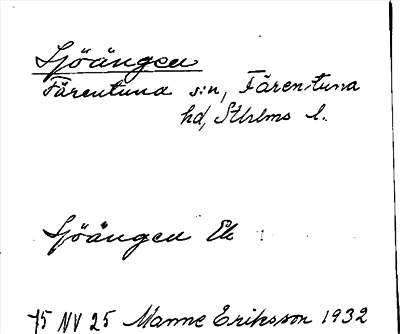 Sjöängen
Färentuna s:n, Färentuna
hd, Sthlms l.
Sjöängen Ek
75 NV 25 Manne Eriksson 1932